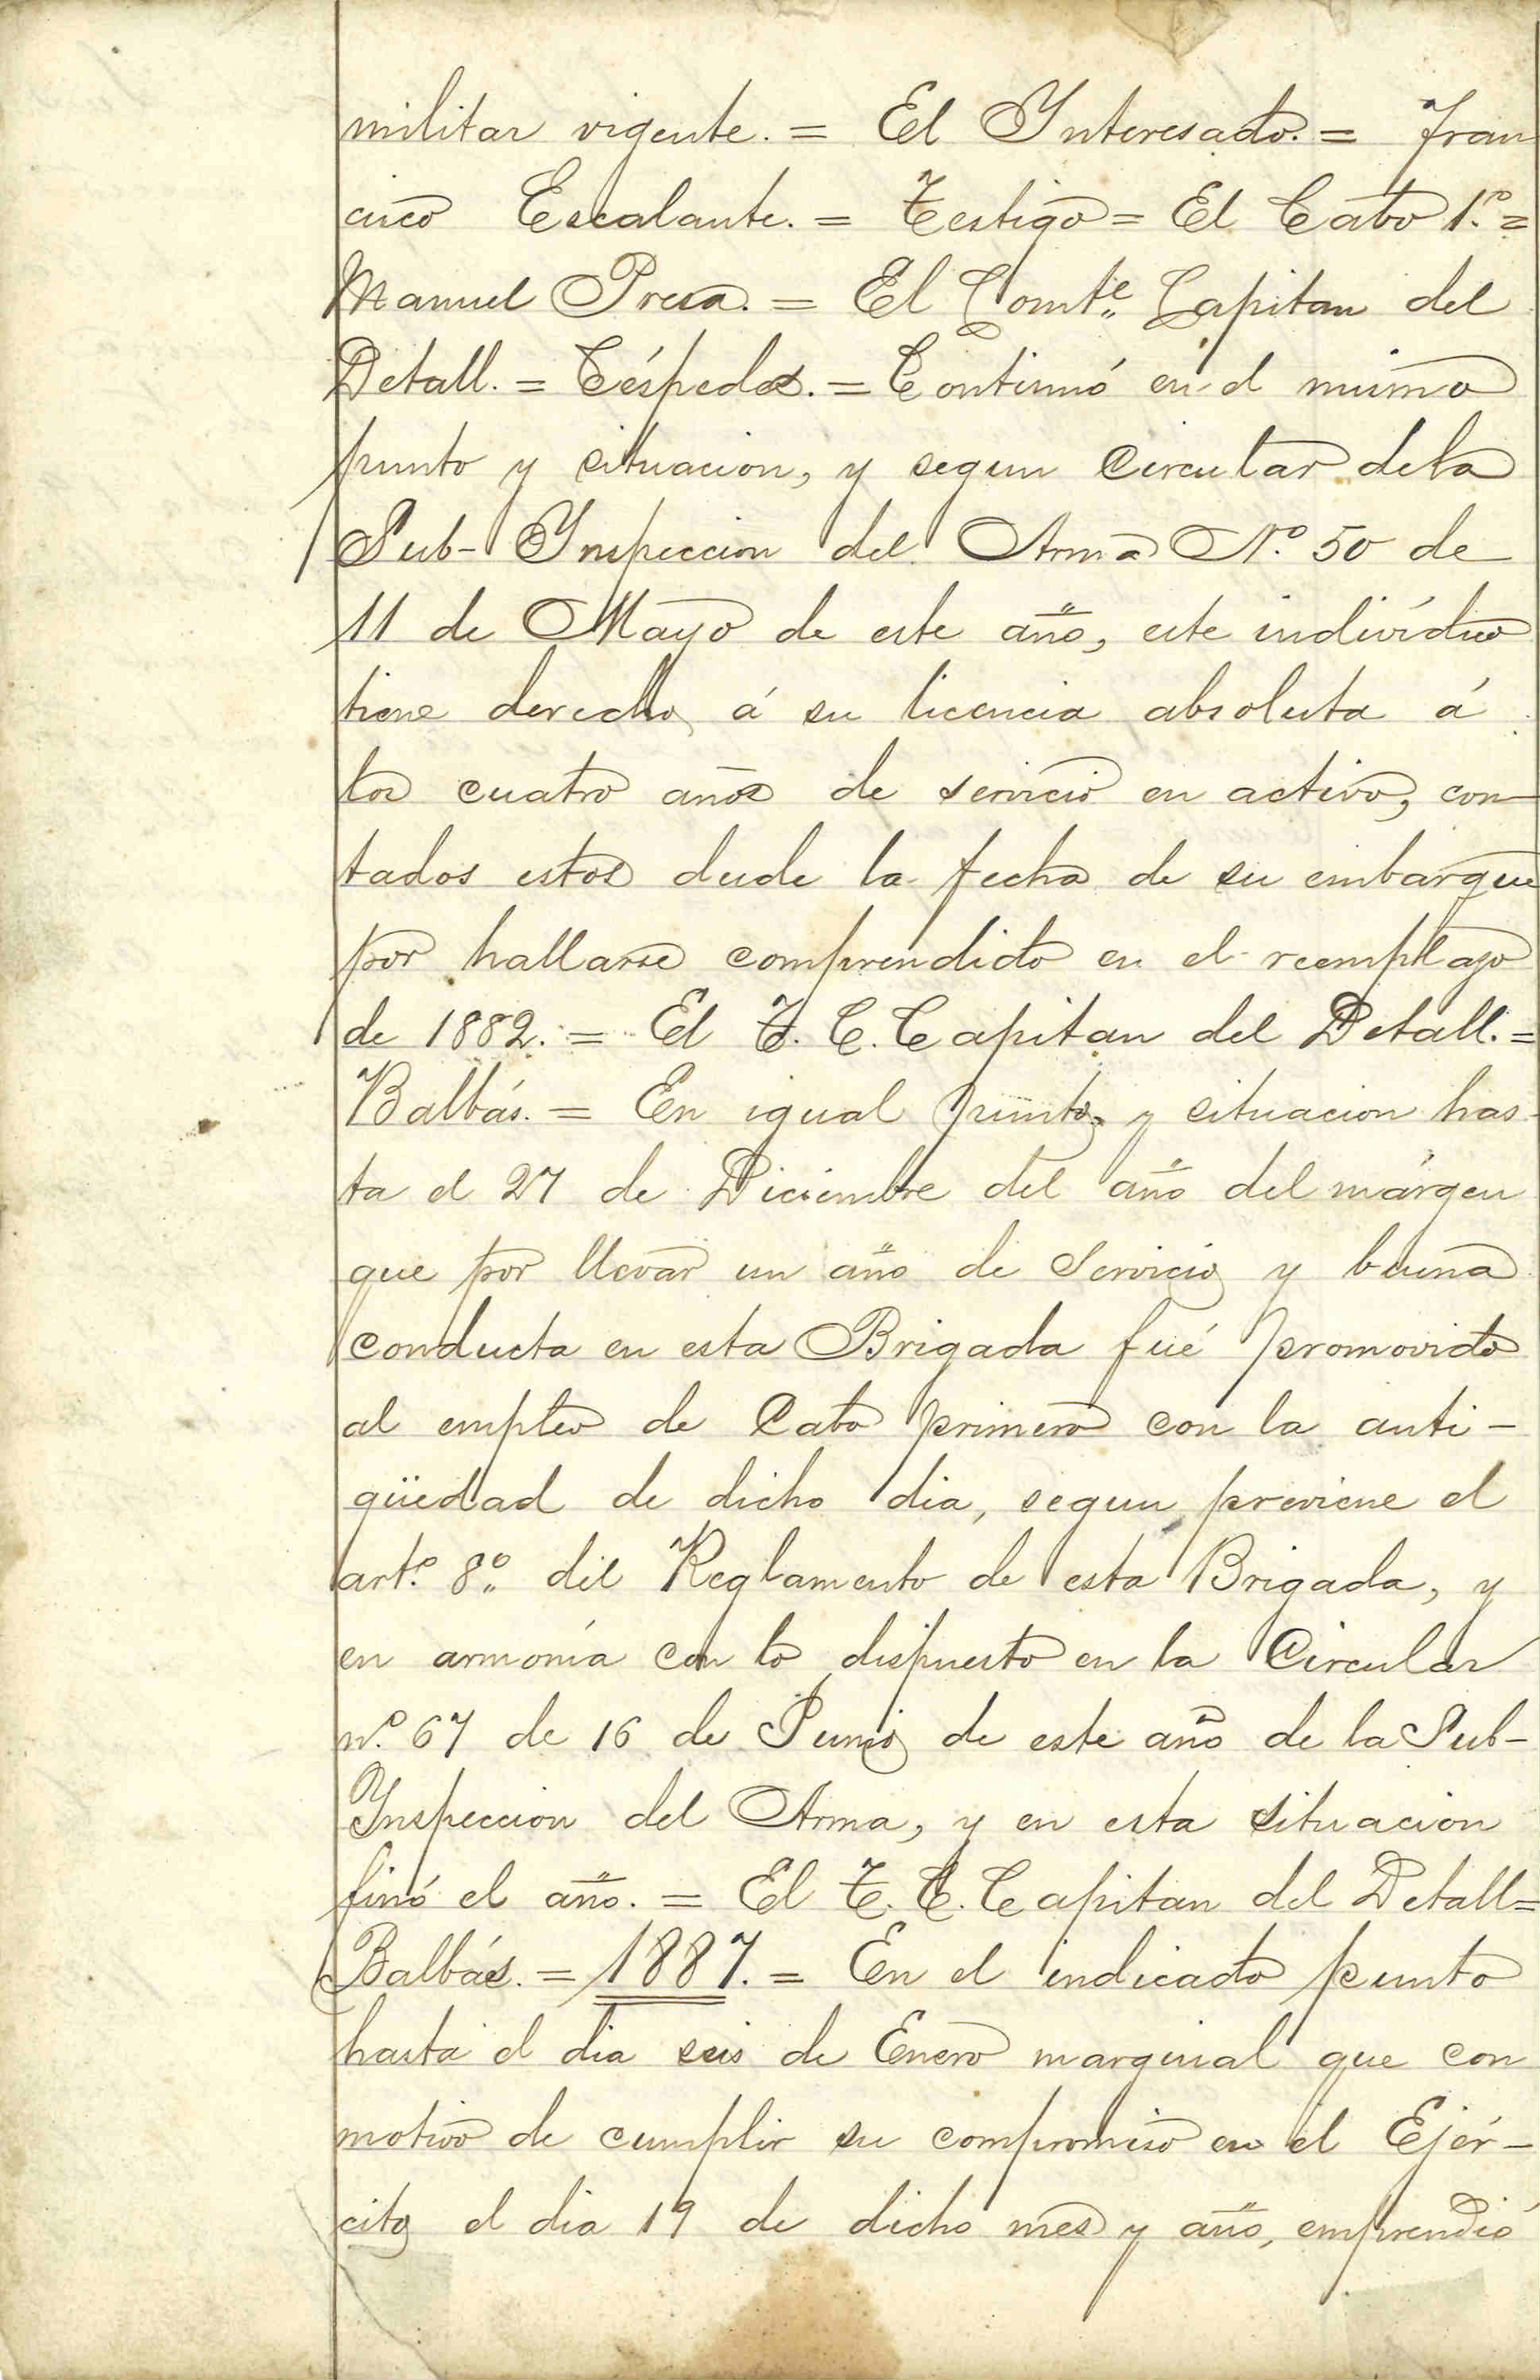 militar vigente. = El Interesado. = Fran
cisco Escalante. = Testigo = El Cabo 1.º =
Manuel Presa. = El Comte. Capitan del
Detall. = Céspedes. = Continuó en el mismo
punto y situacion, y segun circular de la
Sub-Inspeccion del Arma N.º 50 de
11 de Mayo de este año, este indivíduo
tiene derecho á su licencia absoluta á
los cuatro años de servicio en activo, con
tados estos desde la fecha de su embarque
por hallarse comprendido en el reemplazo
de 1882. = El T. C. Capitan del Detall. =
Balbás. = En igual punto y situacion has
ta el 27 de Diciembre del año del márgen
que por llevar un año de servicio y buena
conducta en esta Brigada fué promovido
al empleo de Cabo primero con la anti-
güedad de dicho dia, segun previene el
art.º 8.º del Reglamento de esta Brigada, y
en armonía con lo dispuesto en la Circular
n.º 67 de 16 de Junio de este año de la Sub-
Inspeccion del Arma, y en esta situacion
finó el año. = El T. C. Capitan del Detall =
Balbás. = 1887. = En el indicado punto
hasta el dia seis de Enero marginal que con
motivo de cumplir su compromiso en el Ejér-
cito el dia 19 de dicho mes y año, emprendió